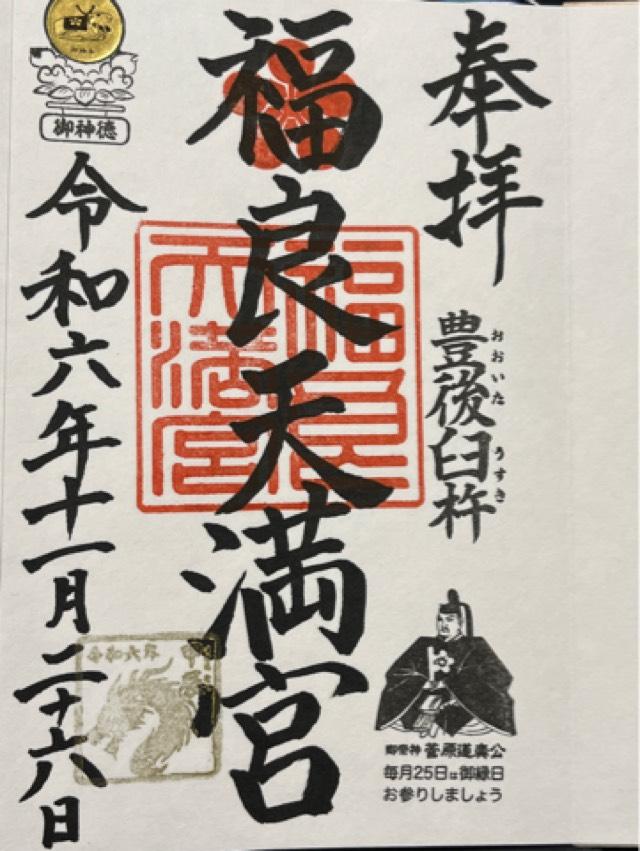 奉拝
豊後臼杵
おおいた
うすき
御祭神 菅原道真公
毎月25日は御縁日
お参りしましょう
福良天満宮
福良
天満宮
御神徳
令和六年十一月二十六日
令和六年